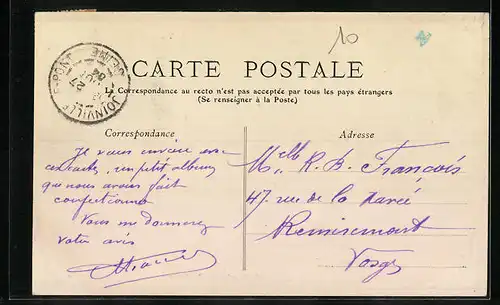 10
JOINVILLE-LE-PONT
SEINE
CARTE POSTALE
La Correspondance au recto n'est pas acceptée par tous les pays étrangers
(Se renseigner à la Poste)
Correspondance
Je vous envoie
un petit album
que nous avons fait
confectionner
Vous me donnerez
votre avis
Adresse
Melle R. B. François
47 rue de la
Remiremont
Vosges